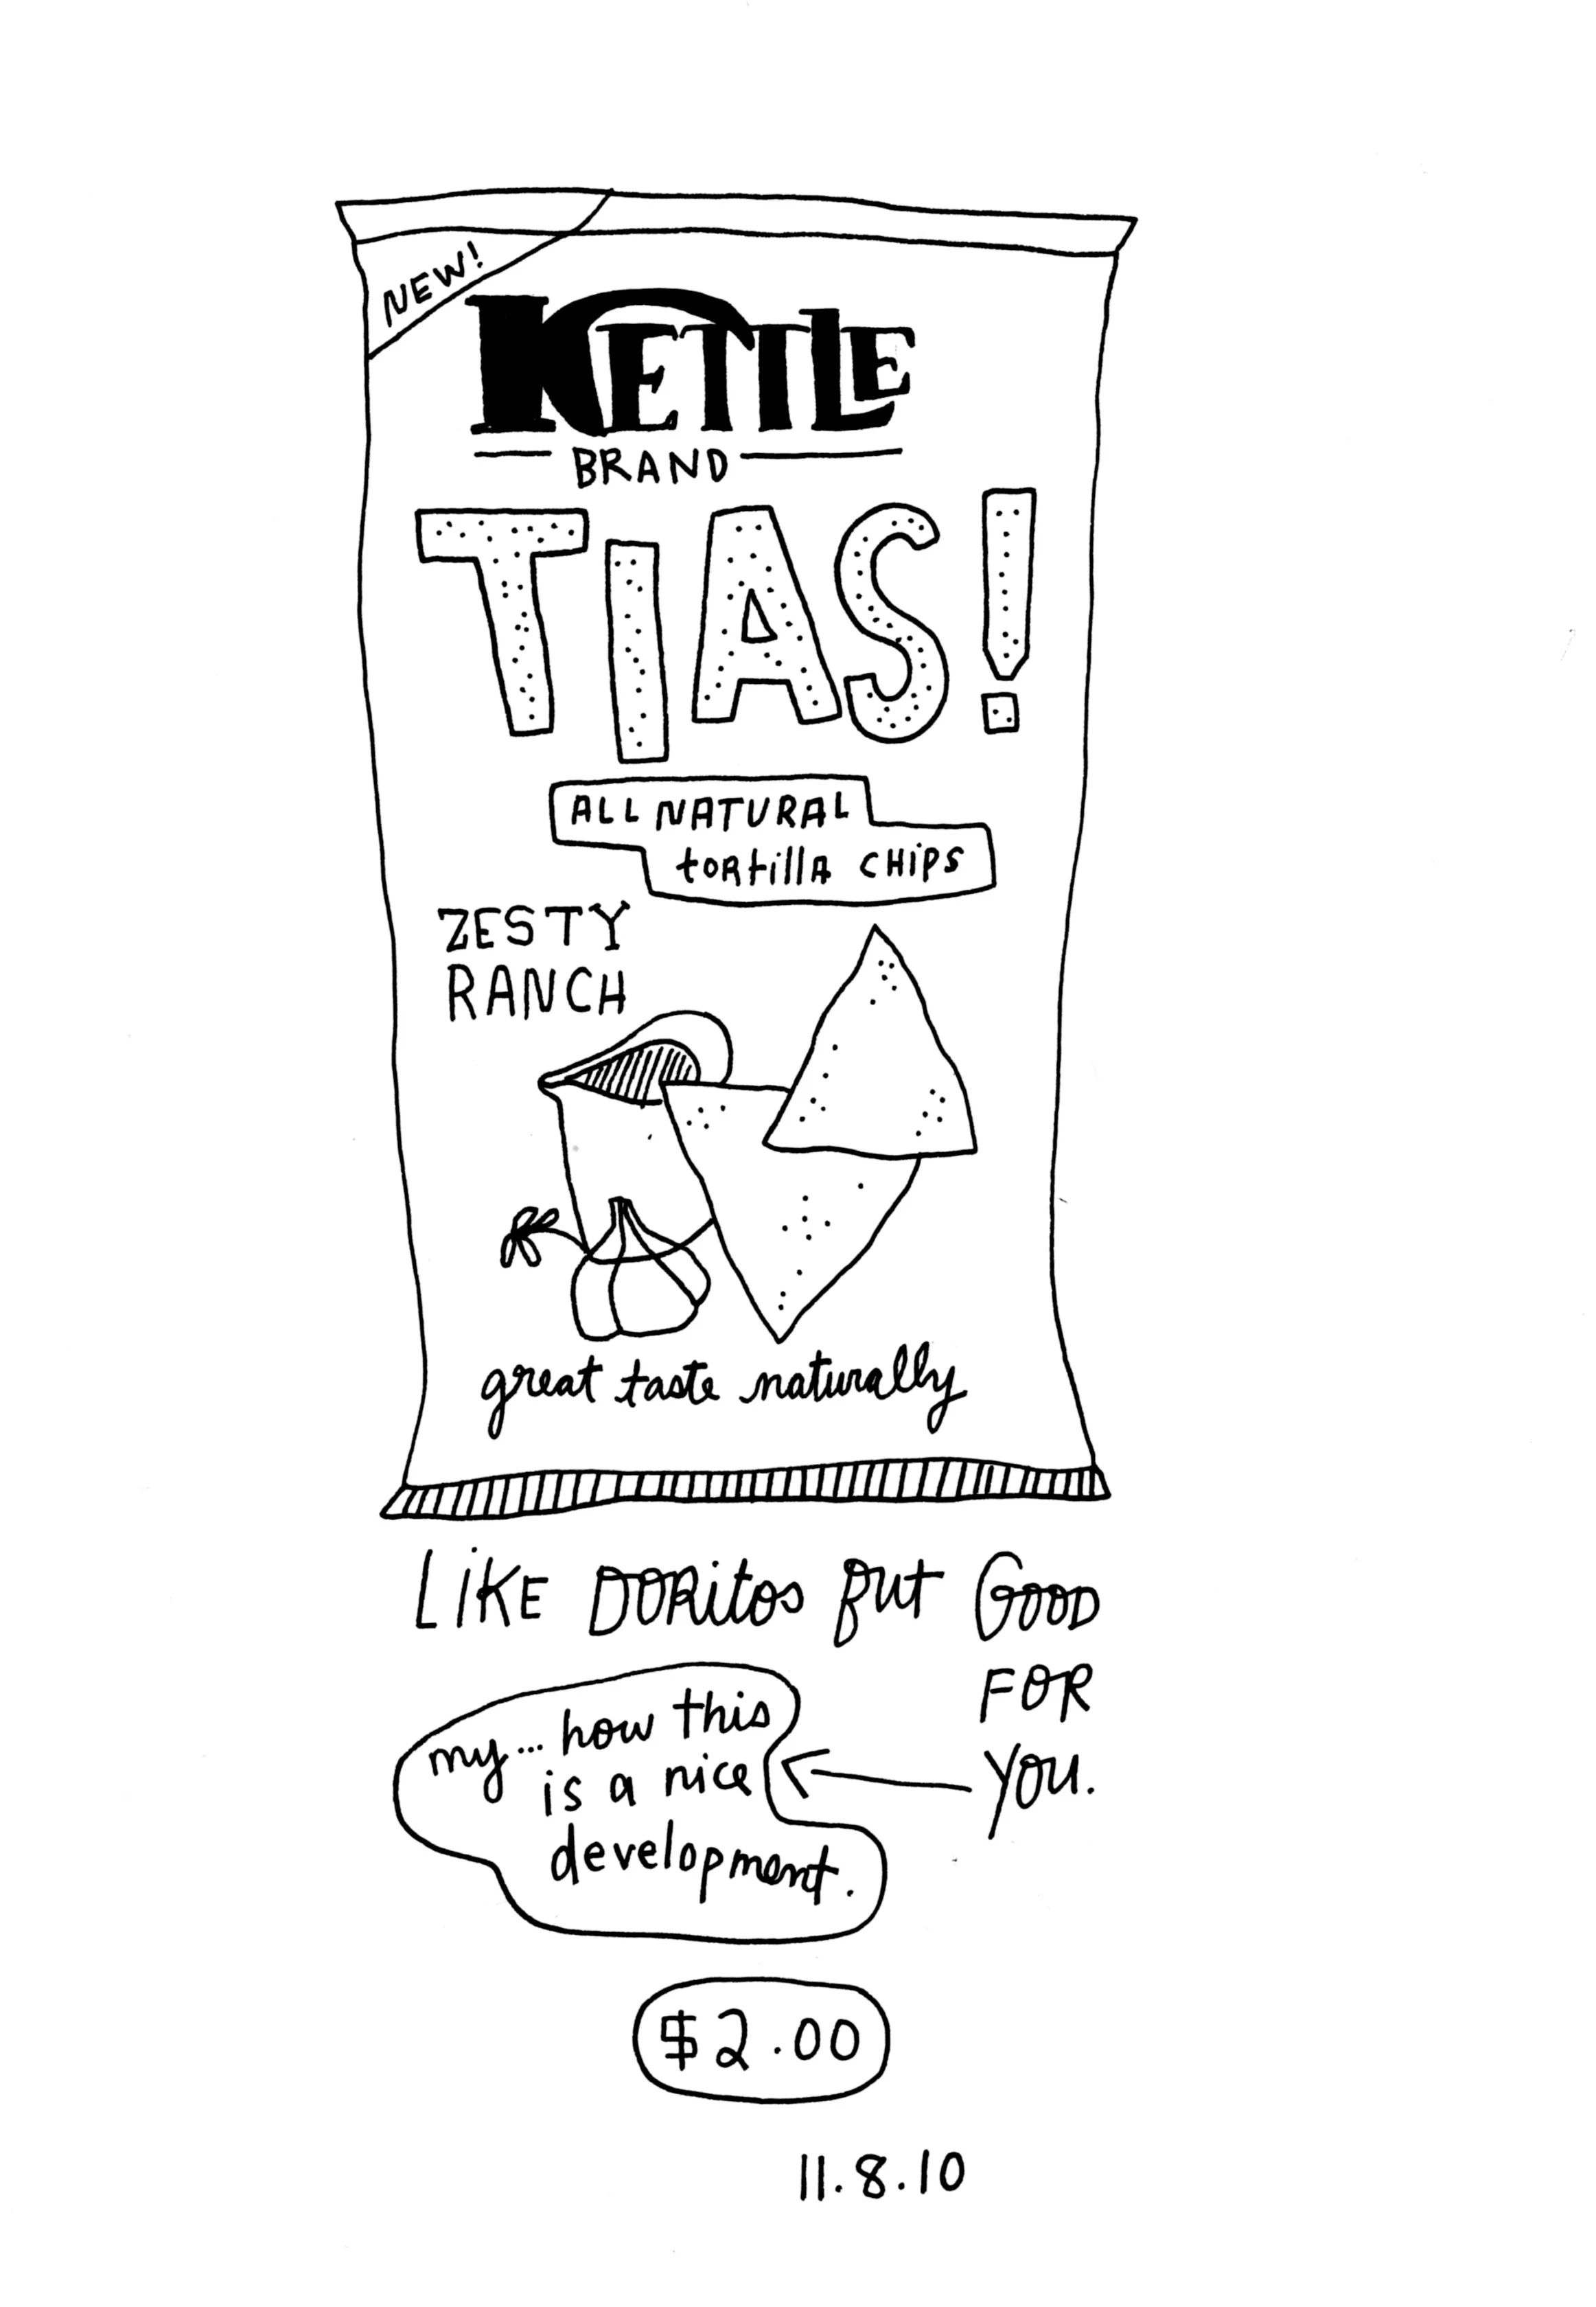 NEW!
KETTLE
BRAND
TIAS!
ALL NATURAL
tortilla CHIPS
ZESTY
RANCH
great taste naturally
LIKE DORitos But GOOD
FOR
YOU.
my... how this
is a nice
development.
$2.00
11.8.10